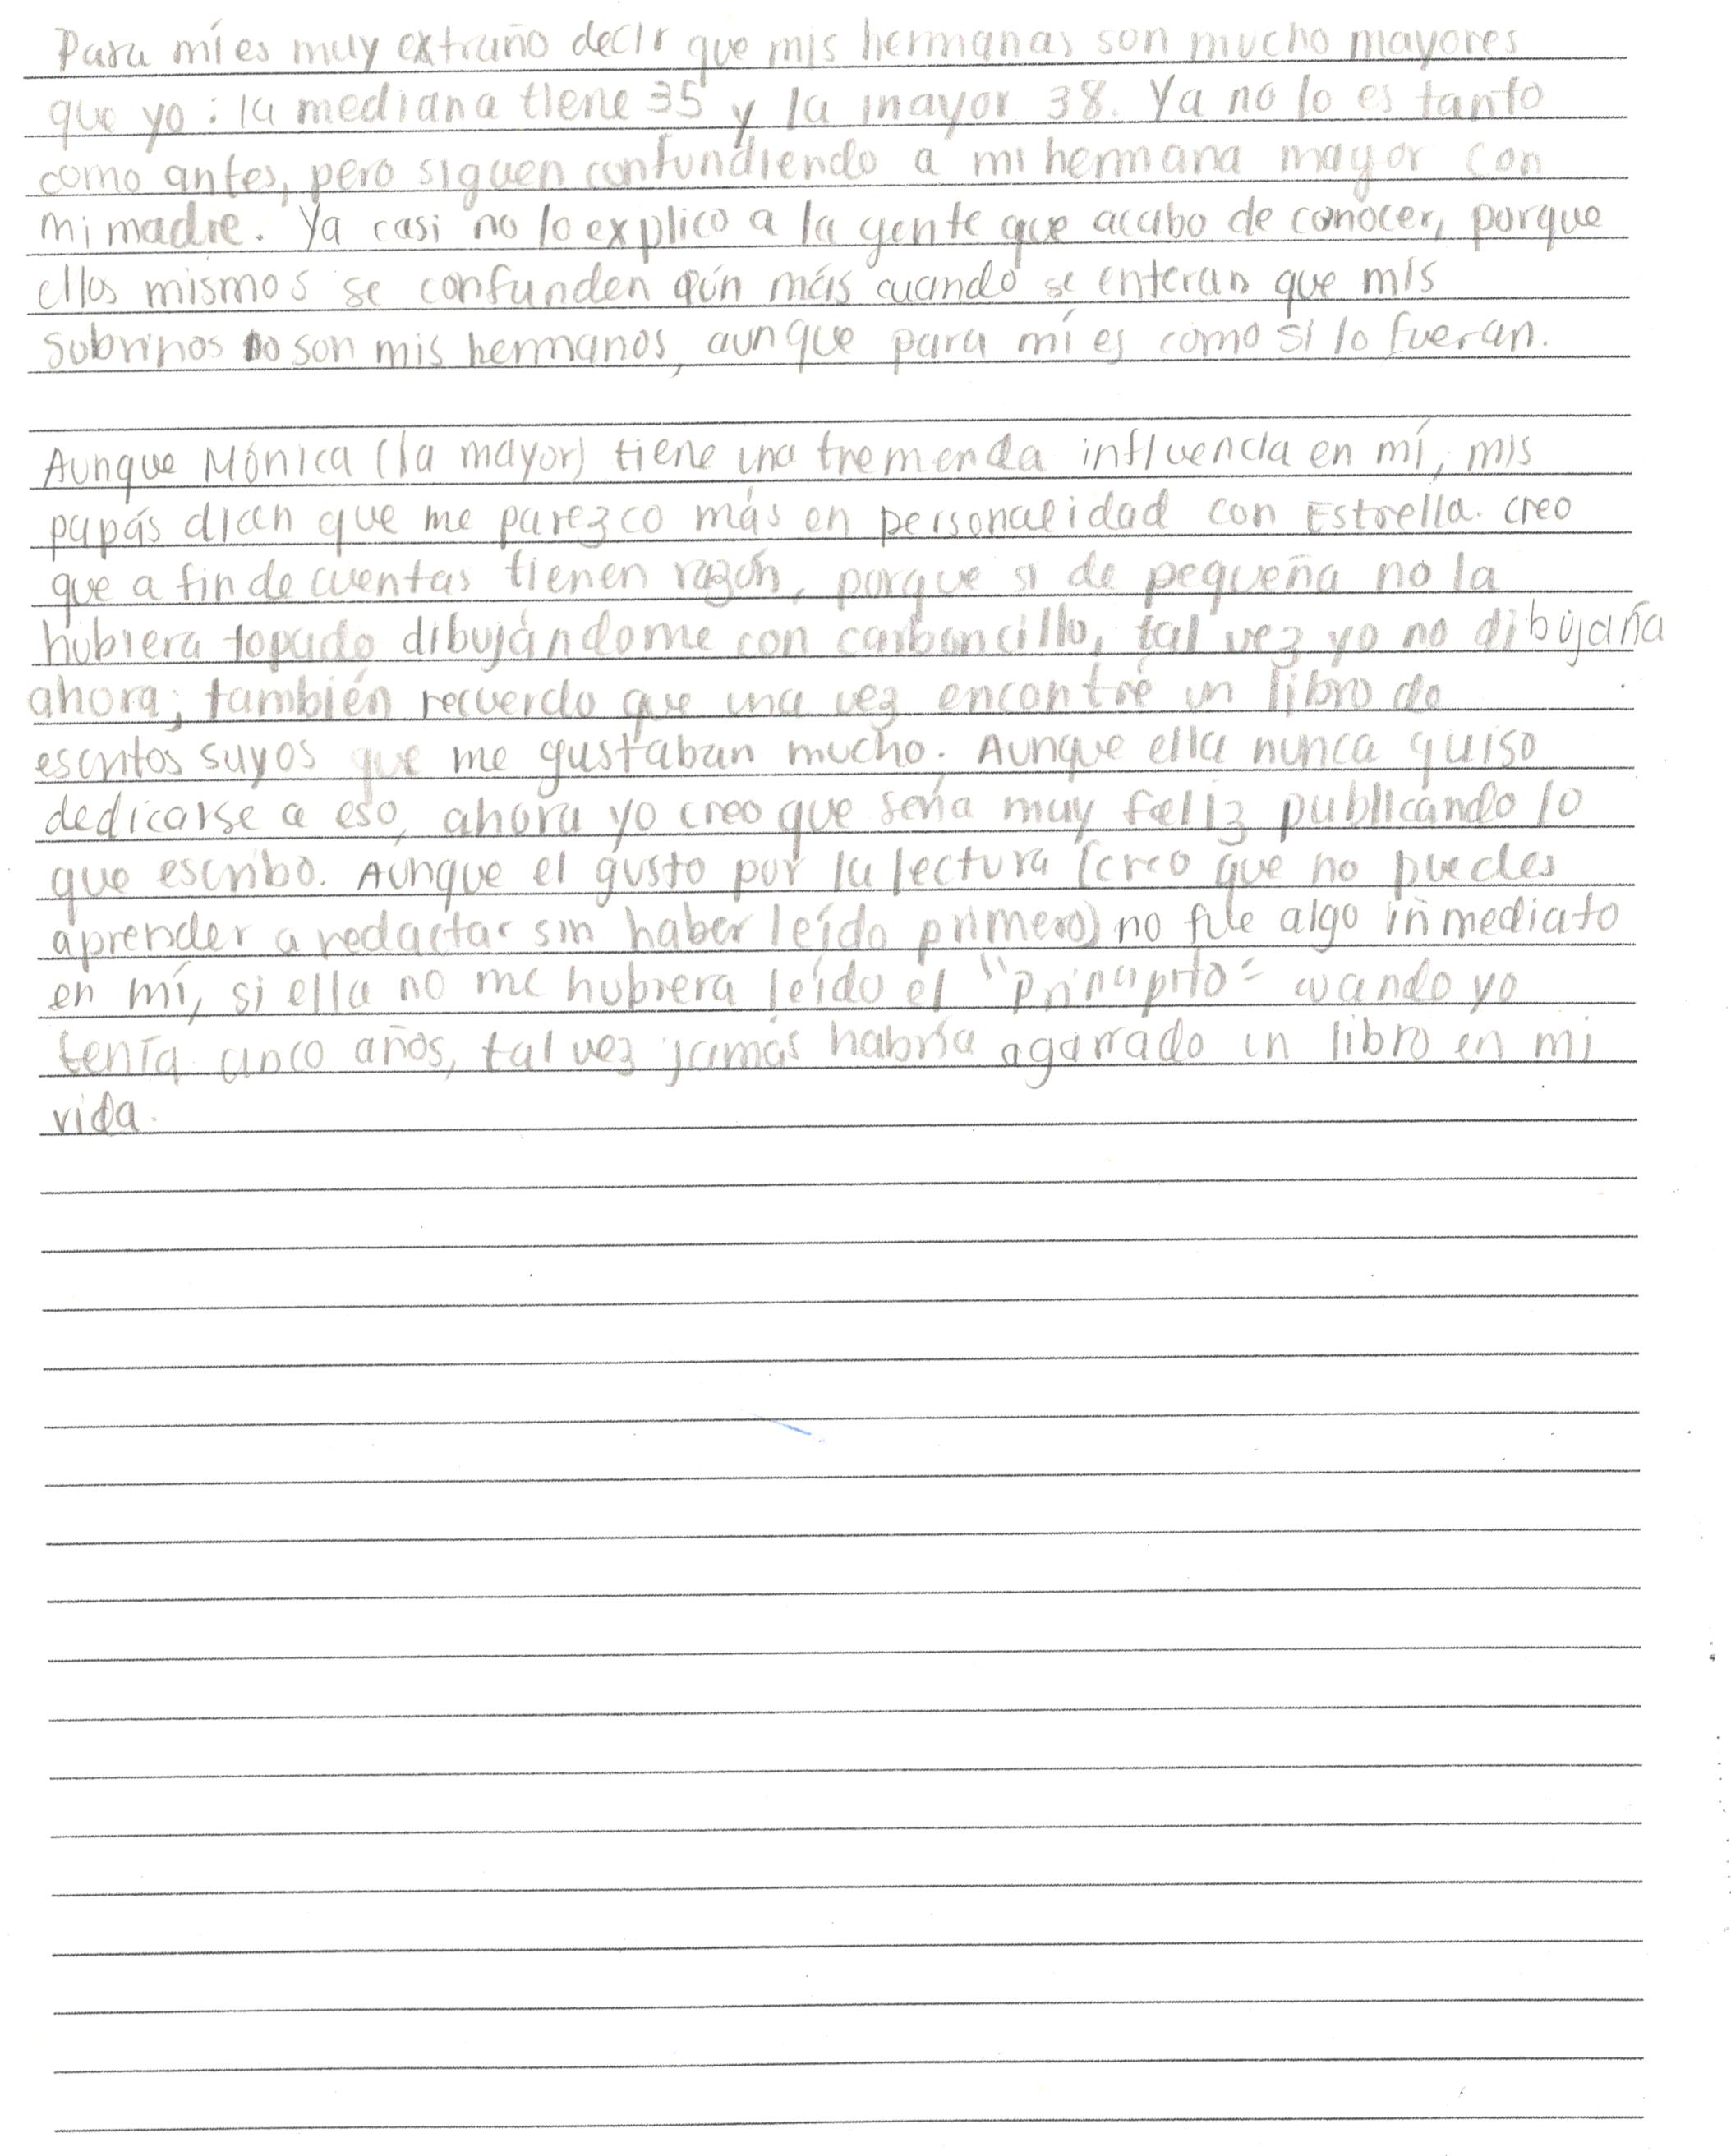 Para mí es muy extraño decir que mis hermanas son mucho mayores
que yo: la mediana tiene 35 y la mayor 38. Ya no lo es tanto
como antes, pero siguen confundiendo a mi hermana mayor con
mi madre. Ya casi no lo explico a la gente que acabo de conocer, porque
ellos mismos se confunden aún más cuando se enteran que mis
sobrinos no son mis hermanos, aunque para mí es como si lo fueran.
Aunque Mónica (la mayor) tiene una tremenda influencia en mí, mis
papás dicen que me parezco más en personalidad con Estrella. creo
que a fin de cuentas tienen razón, porque si de pequeña no la
hubiera topado dibujándome con carboncillo, tal vez yo no dibujaría
ahora; también recuerdo que una vez encontré un libro de
escritos suyos que me gustaban mucho. Aunque ella nunca quiso
dedicarse a eso, ahora yo creo que sería muy feliz publicando lo
que escribo. Aunque el gusto por la lectura (creo que no puedes
aprender a redactar sin haber leído primero) no fue algo inmediato
en mí, si ella no me hubiera leído el "Principito" cuando yo
tenía cinco años, tal vez jamás habría agarrado un libro en mi
vida.